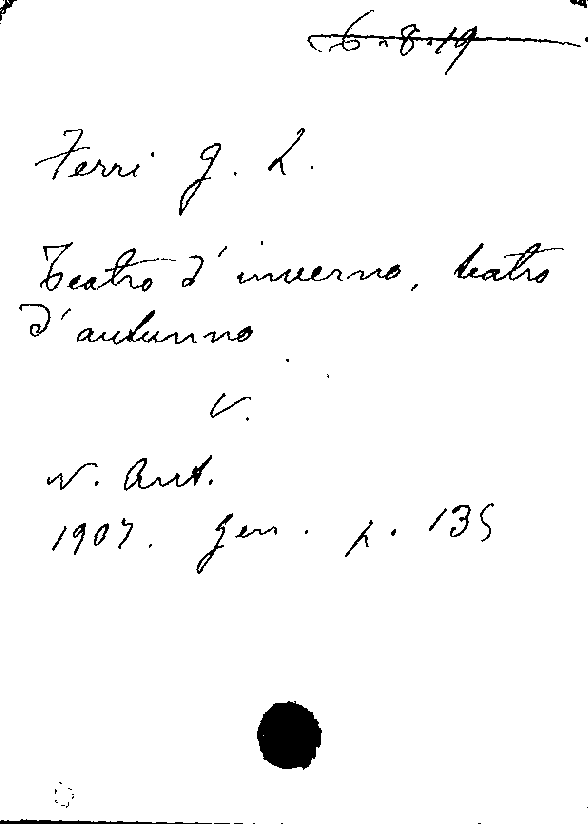 6.8.19
Ferri G. L.
Teatro d'inverno, teatro
d'autunno
V.
N. Ant.
1907. Gen. p. 135